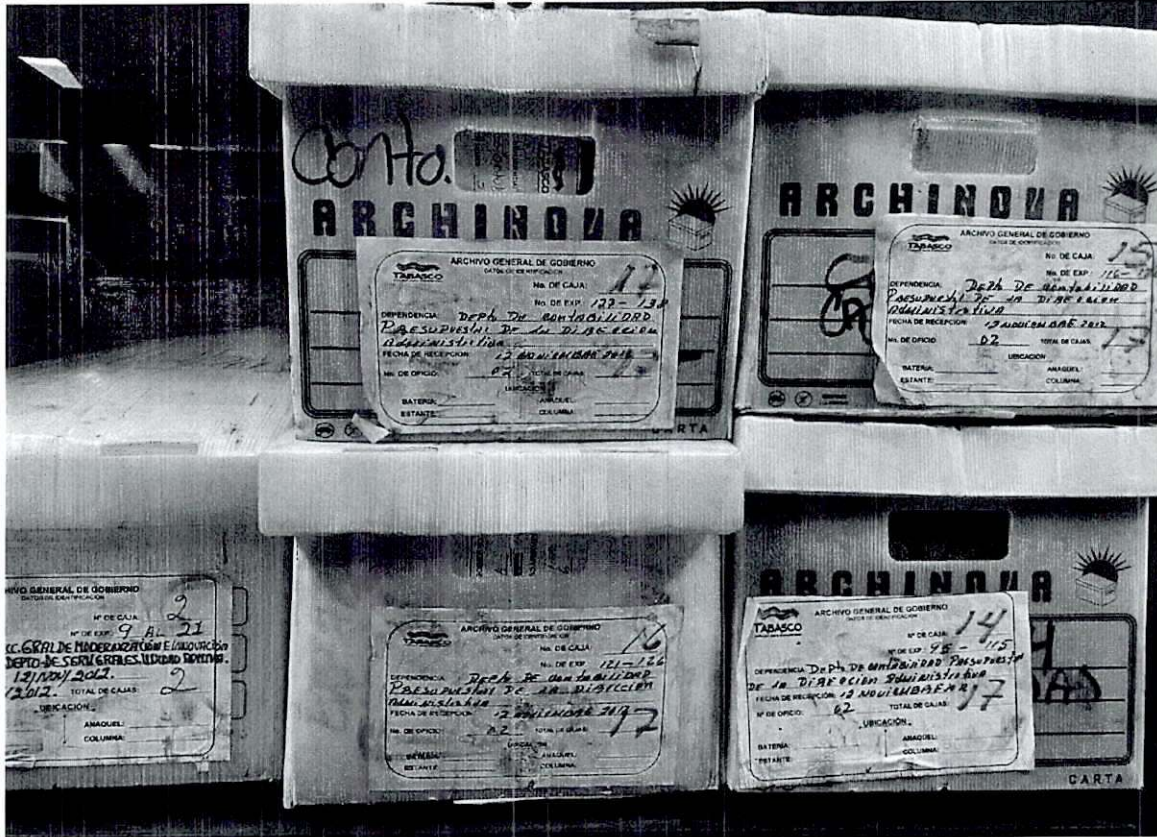 Conta.
ARCHINOVA
TABASCO
ARCHIVO GENERAL DE GOBIERNO
DATOS DE IDENTIFICACION
No. DE CAJA: 17
No. DE EXP: 127-138
DEPENDENCIA: DEPto DE CONTABILIDAD
PRESUPUESTAL DE LA DIRECCION
Administrativa
FECHA DE RECEPCION: 12 NOVIEMBRE
No. DE OFICIO: 02 TOTAL DE CAJAS:
UBICACION
BATERIA: ANAQUEL:
ESTANTE: COLUMNA:
CARTA
ARCHINOVA
TABASCO
ARCHIVO GENERAL DE GOBIERNO
DATOS DE IDENTIFICACION
No. DE CAJA: 15
No. DE EXP: 116-
DEPENDENCIA: DEPto DE CONTABILIDAD
PRESUPUESTAL DE LA DIRECCION
Administrativa
FECHA DE RECEPCION: 12 NOVIEMBRE 2012
No. DE OFICIO: 02 TOTAL DE CAJAS: 17
UBICACION
BATERIA: ANAQUEL:
ESTANTE: COLUMNA:
HIVO GENERAL DE GOBIERNO
DATOS DE IDENTIFICACION
N° DE CAJA: 2
N° DE EXP: 9 AL 21
CC. GRAL DE MODERNIZACIÓN E INNOVACIÓN
DEPTO. DE SERV. GRALES. UNIDAD ADMTVA.
12/NOV/2012.
/2012. TOTAL DE CAJAS: 2
UBICACIÓN
ANAQUEL:
COLUMNA:
ARCHIVO GENERAL DE GOBIERNO
DATOS DE IDENTIFICACION
No. DE CAJA: 16
No. DE EXP: 121-126
DEPENDENCIA: DEPto DE CONTABILIDAD
PRESUPUESTAL DE LA DIRECCION
Administrativa
FECHA DE RECEPCION: 12 NOVIEMBRE 2012
No. DE OFICIO: 02 TOTAL DE CAJAS: 17
UBICACION
BATERIA: ANAQUEL:
ESTANTE: COLUMNA:
ARCHINOVA
TABASCO
ARCHIVO GENERAL DE GOBIERNO
DATOS DE IDENTIFICACION
N° DE CAJA: 14
N° DE EXP: 95-115
DEPENDENCIA: DEPto DE CONTABILIDAD PRESUPUESTAL
DE LA DIRECCION Administrativa
FECHA DE RECEPCIÓN: 12 NOVIEMBRE
N° DE OFICIO: 02 TOTAL DE CAJAS: 17
UBICACIÓN
BATERIA: ANAQUEL:
ESTANTE: COLUMNA:
CARTA